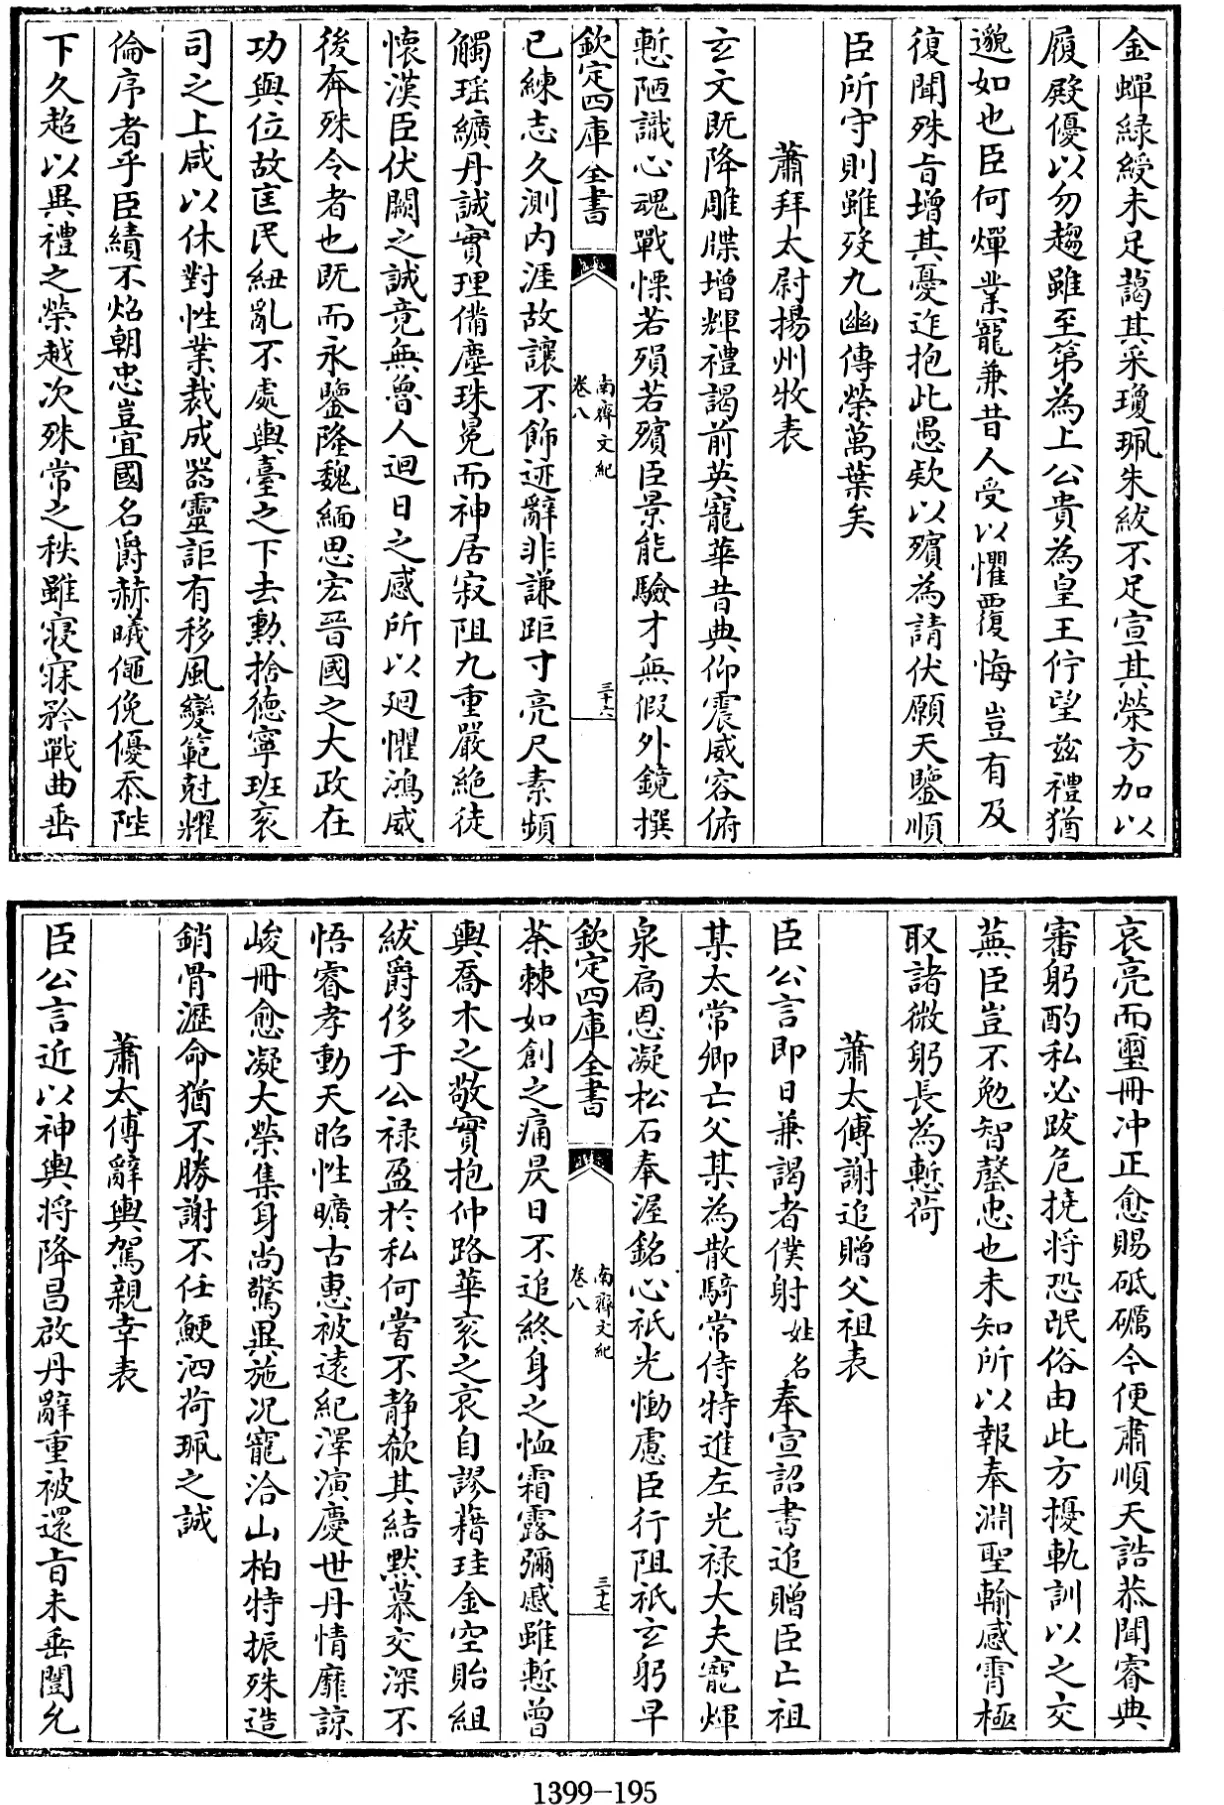 金蟬緑綬未足藹其采瓊珮朱紱不足宣其榮方加以
履殿優以勿趨雖至第為上公貴為皇王佇望兹禮猶
邈如也臣何煇業寵兼昔人受以懼覆悔豈有及
復聞殊㫖增其憂迮抱此愚欵以殞為請伏願天鑒順
臣所守則雖歿九幽傳榮萬葉矣
蕭拜太尉揚州牧表
玄文既降雕牒増輝禮謁前英寵華昔典仰震威容俯
慙陋識心魂戰慄若殞若殯臣景能驗才無假外鏡撰
欽定四庫全書
南齊文紀
卷八
三十六
已練志久測内涯故讓不飾迹辭非謙距寸亮尺素頻
觸瑶纊丹誠實理備塵珠冕而神居寂阻九重嚴絶徒
懷漢臣伏闕之誠竟無魯人迴日之感所以廻懼鴻威
後奔殊令者也既而永鑒隆魏緬思宏晉國之大政在
功與位故匡民紐亂不處輿臺之下去勲捨德寧班衮
司之上咸以休對性業裁成器靈詎有移風變範尅耀
倫序者乎臣績不焰朝忠豈宜國名爵赫曦僶俛優忝陛
下久超以異禮之榮越次殊常之秩雖寢寐矜戰曲垂
哀亮而璽冊冲正愈賜砥礪今便肅順天誥恭聞睿典
審躬酌私必跋危撓將恐氓俗由此方擾軌訓以之交
蕪臣豈不勉智罄忠也未知所以報奉淵聖輸感霄極
取諸微躬長為慙荷
蕭太傅謝追贈父祖表
臣公言即日兼謁者僕射姓名奉宣詔書追贈臣亡祖
某太常卿亡父某為散騎常侍特進左光禄大夫寵煇
泉扄恩凝松石奉渥銘心祇光慟慮臣行阻祇玄躬早
欽定四庫全書
南齊文紀
卷八
三十七
荼棘如創之痛昃日不追終身之恤霜露彌慼雖慙曾
輿喬木之敬實抱仲路華衮之哀自謬藉珪金空貽組
紱爵侈于公禄盈於私何嘗不静欷其結黙慕交深不
悟睿孝動天昭性曠古惠被遠紀澤演慶世丹情靡諒
峻冊愈凝大榮集身尚驚異施况寵洽山柏特振殊造
銷骨瀝命猶不勝謝不任鯁泗荷珮之誠
蕭太傅辭輿駕親幸表
臣公言近以神輿將降昌啟丹辭重被還㫖未垂闓允
1399-195